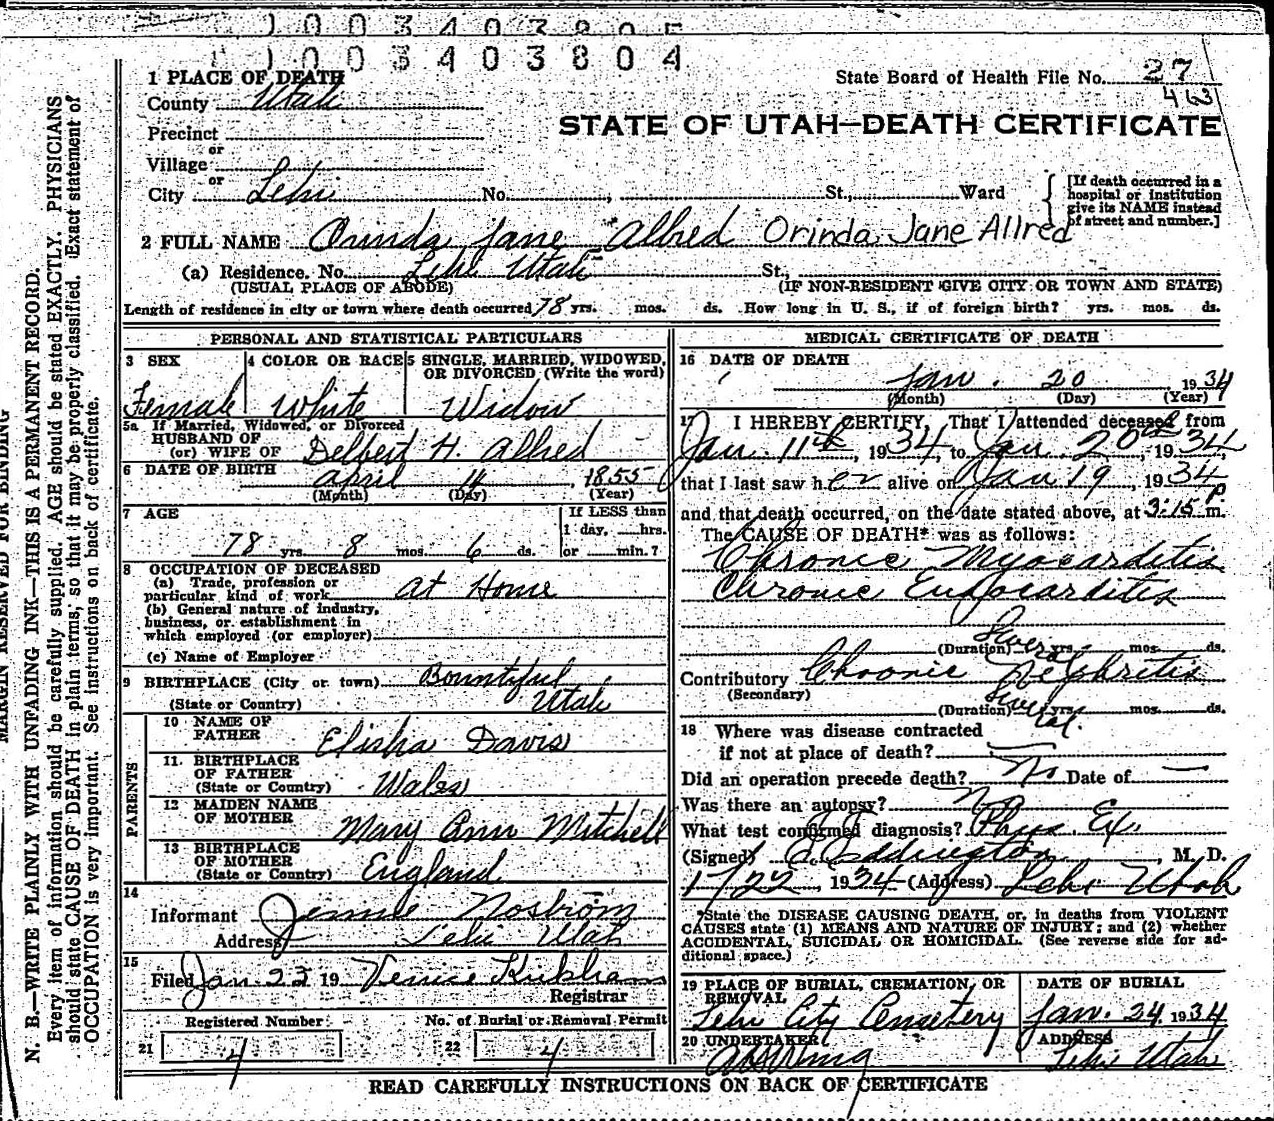 1003403804
1 PLACE OF DEATH
County Utah
State Board of Health File No. 27
463
Precinct
or
Village
or
City Lehi No. , St., Ward
STATE OF UTAH—DEATH CERTIFICATE
[If death occurred in a
hospital or institution
give its NAME instead
of street and number.]
2 FULL NAME Orinda Jane Allred Orinda Jane Allred
(a) Residence. No. Lehi Utah St.,
(USUAL PLACE OF ABODE) (IF NON-RESIDENT GIVE CITY OR TOWN AND STATE)
Length of residence in city or town where death occurred 78 yrs. mos. ds. How long in U. S., if of foreign birth? yrs. mos. ds.
PERSONAL AND STATISTICAL PARTICULARS
3 SEX
4 COLOR OR RACE
5 SINGLE, MARRIED, WIDOWED,
OR DIVORCED (Write the word)
Female White Widow
5a If Married, Widowed, or Divorced
HUSBAND OF
(or) WIFE OF Delbert H. Allred
6 DATE OF BIRTH April 14, 1855
(Month) (Day) (Year)
7 AGE
If LESS than
1 day, hrs.
78 yrs. 8 mos. 6 ds. or min.?
8 OCCUPATION OF DECEASED
(a) Trade, profession or
particular kind of work At Home
(b) General nature of industry,
business, or establishment in
which employed (or employer)
(c) Name of Employer
9 BIRTHPLACE (City or town) Bountiful
(State or Country) Utah
PARENTS
10 NAME OF
FATHER Elisha Davis
11. BIRTHPLACE
OF FATHER
(State or Country) Wales
12 MAIDEN NAME
OF MOTHER Mary Ann Mitchell
13 BIRTHPLACE
OF MOTHER
(State or Country) England
14
Informant Jennie Nostrom
Address Lehi Utah
15
Filed Jan 23 19 Venice
Registrar
Registered Number No. of Burial or Removal Permit
21 4 22 4
MEDICAL CERTIFICATE OF DEATH
16 DATE OF DEATH
Jan. 20, 1934
(Month) (Day) (Year)
17 I HEREBY CERTIFY, That I attended deceased from
Jan. 11th, 1934, to Jan. 20th, 1934,
that I last saw her alive on Jan 19, 1934
and that death occurred, on the date stated above, at 3:15 P. m.
The CAUSE OF DEATH* was as follows:
Chronic Myocarditis
Chronic Endocarditis
(Duration) Several yrs. mos. ds.
Contributory Chronic Nephritis
(Secondary)
(Duration) Several yrs. mos. ds.
18 Where was disease contracted
if not at place of death? —
Did an operation precede death? No Date of —
Was there an autopsy? no
What test confirmed diagnosis? Phys. Ex.
(Signed) Eddington, M. D.
1/22, 1934 (Address) Lehi Utah
*State the DISEASE CAUSING DEATH, or, in deaths from VIOLENT
CAUSES state (1) MEANS AND NATURE OF INJURY; and (2) whether
ACCIDENTAL, SUICIDAL OR HOMICIDAL. (See reverse side for ad-
ditional space.)
19 PLACE OF BURIAL, CREMATION, OR
REMOVAL
Lehi City Cemetery
DATE OF BURIAL
Jan. 24. 1934
20 UNDERTAKER
ADDRESS
Lehi Utah
READ CAREFULLY INSTRUCTIONS ON BACK OF CERTIFICATE
MARGIN RESERVED FOR BINDING
N. B.—WRITE PLAINLY WITH UNFADING INK—THIS IS A PERMANENT RECORD.
Every item of information should be carefully supplied. AGE should be stated EXACTLY. PHYSICIANS
should state CAUSE OF DEATH in plain terms, so that it may be properly classified. Exact statement of
OCCUPATION is very important. See instructions on back of certificate.